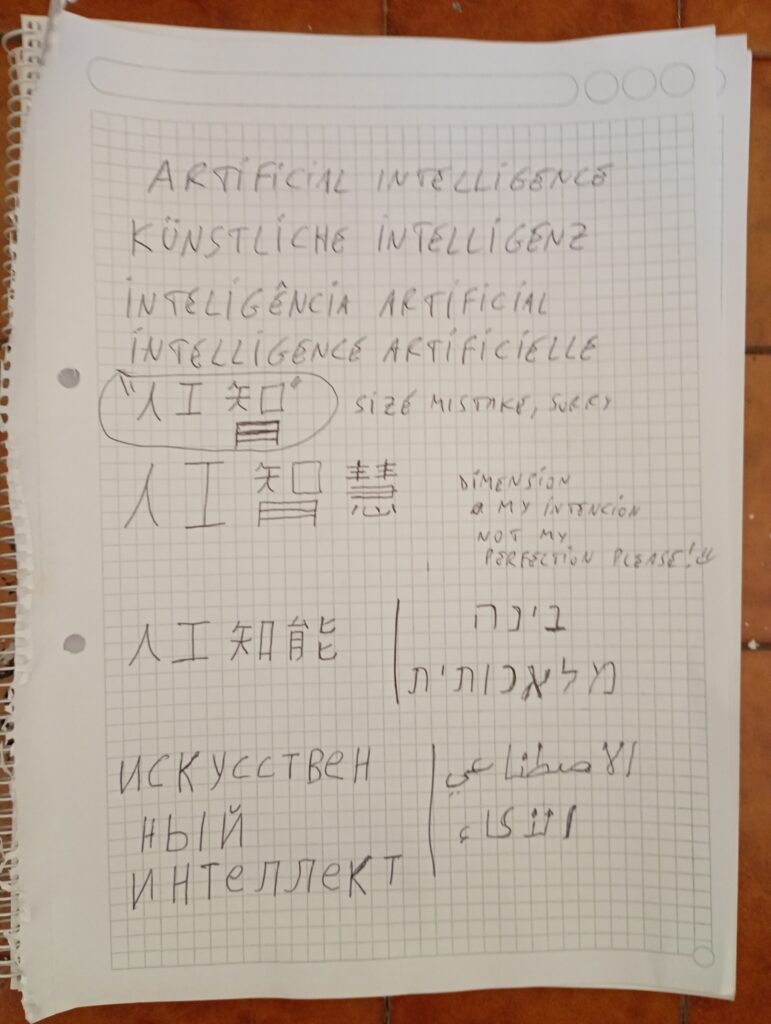 ARTIFICIAL INTELLIGENCE
KÜNSTLICHE INTELLIGENZ
INTELIGÊNCIA ARTIFICIAL
INTELLIGENCE ARTIFICIELLE
"人工智" SIZE MISTAKE, SORRY
人工智慧
DIMENSION
MY INTENCION
NOT MY
PERFECTION PLEASE!
人工知能
בינה
מלאכותית
ИСКУССТВЕН
НЫЙ
ИНТЕЛЛЕКТ
الاصطناعي
الذكاء